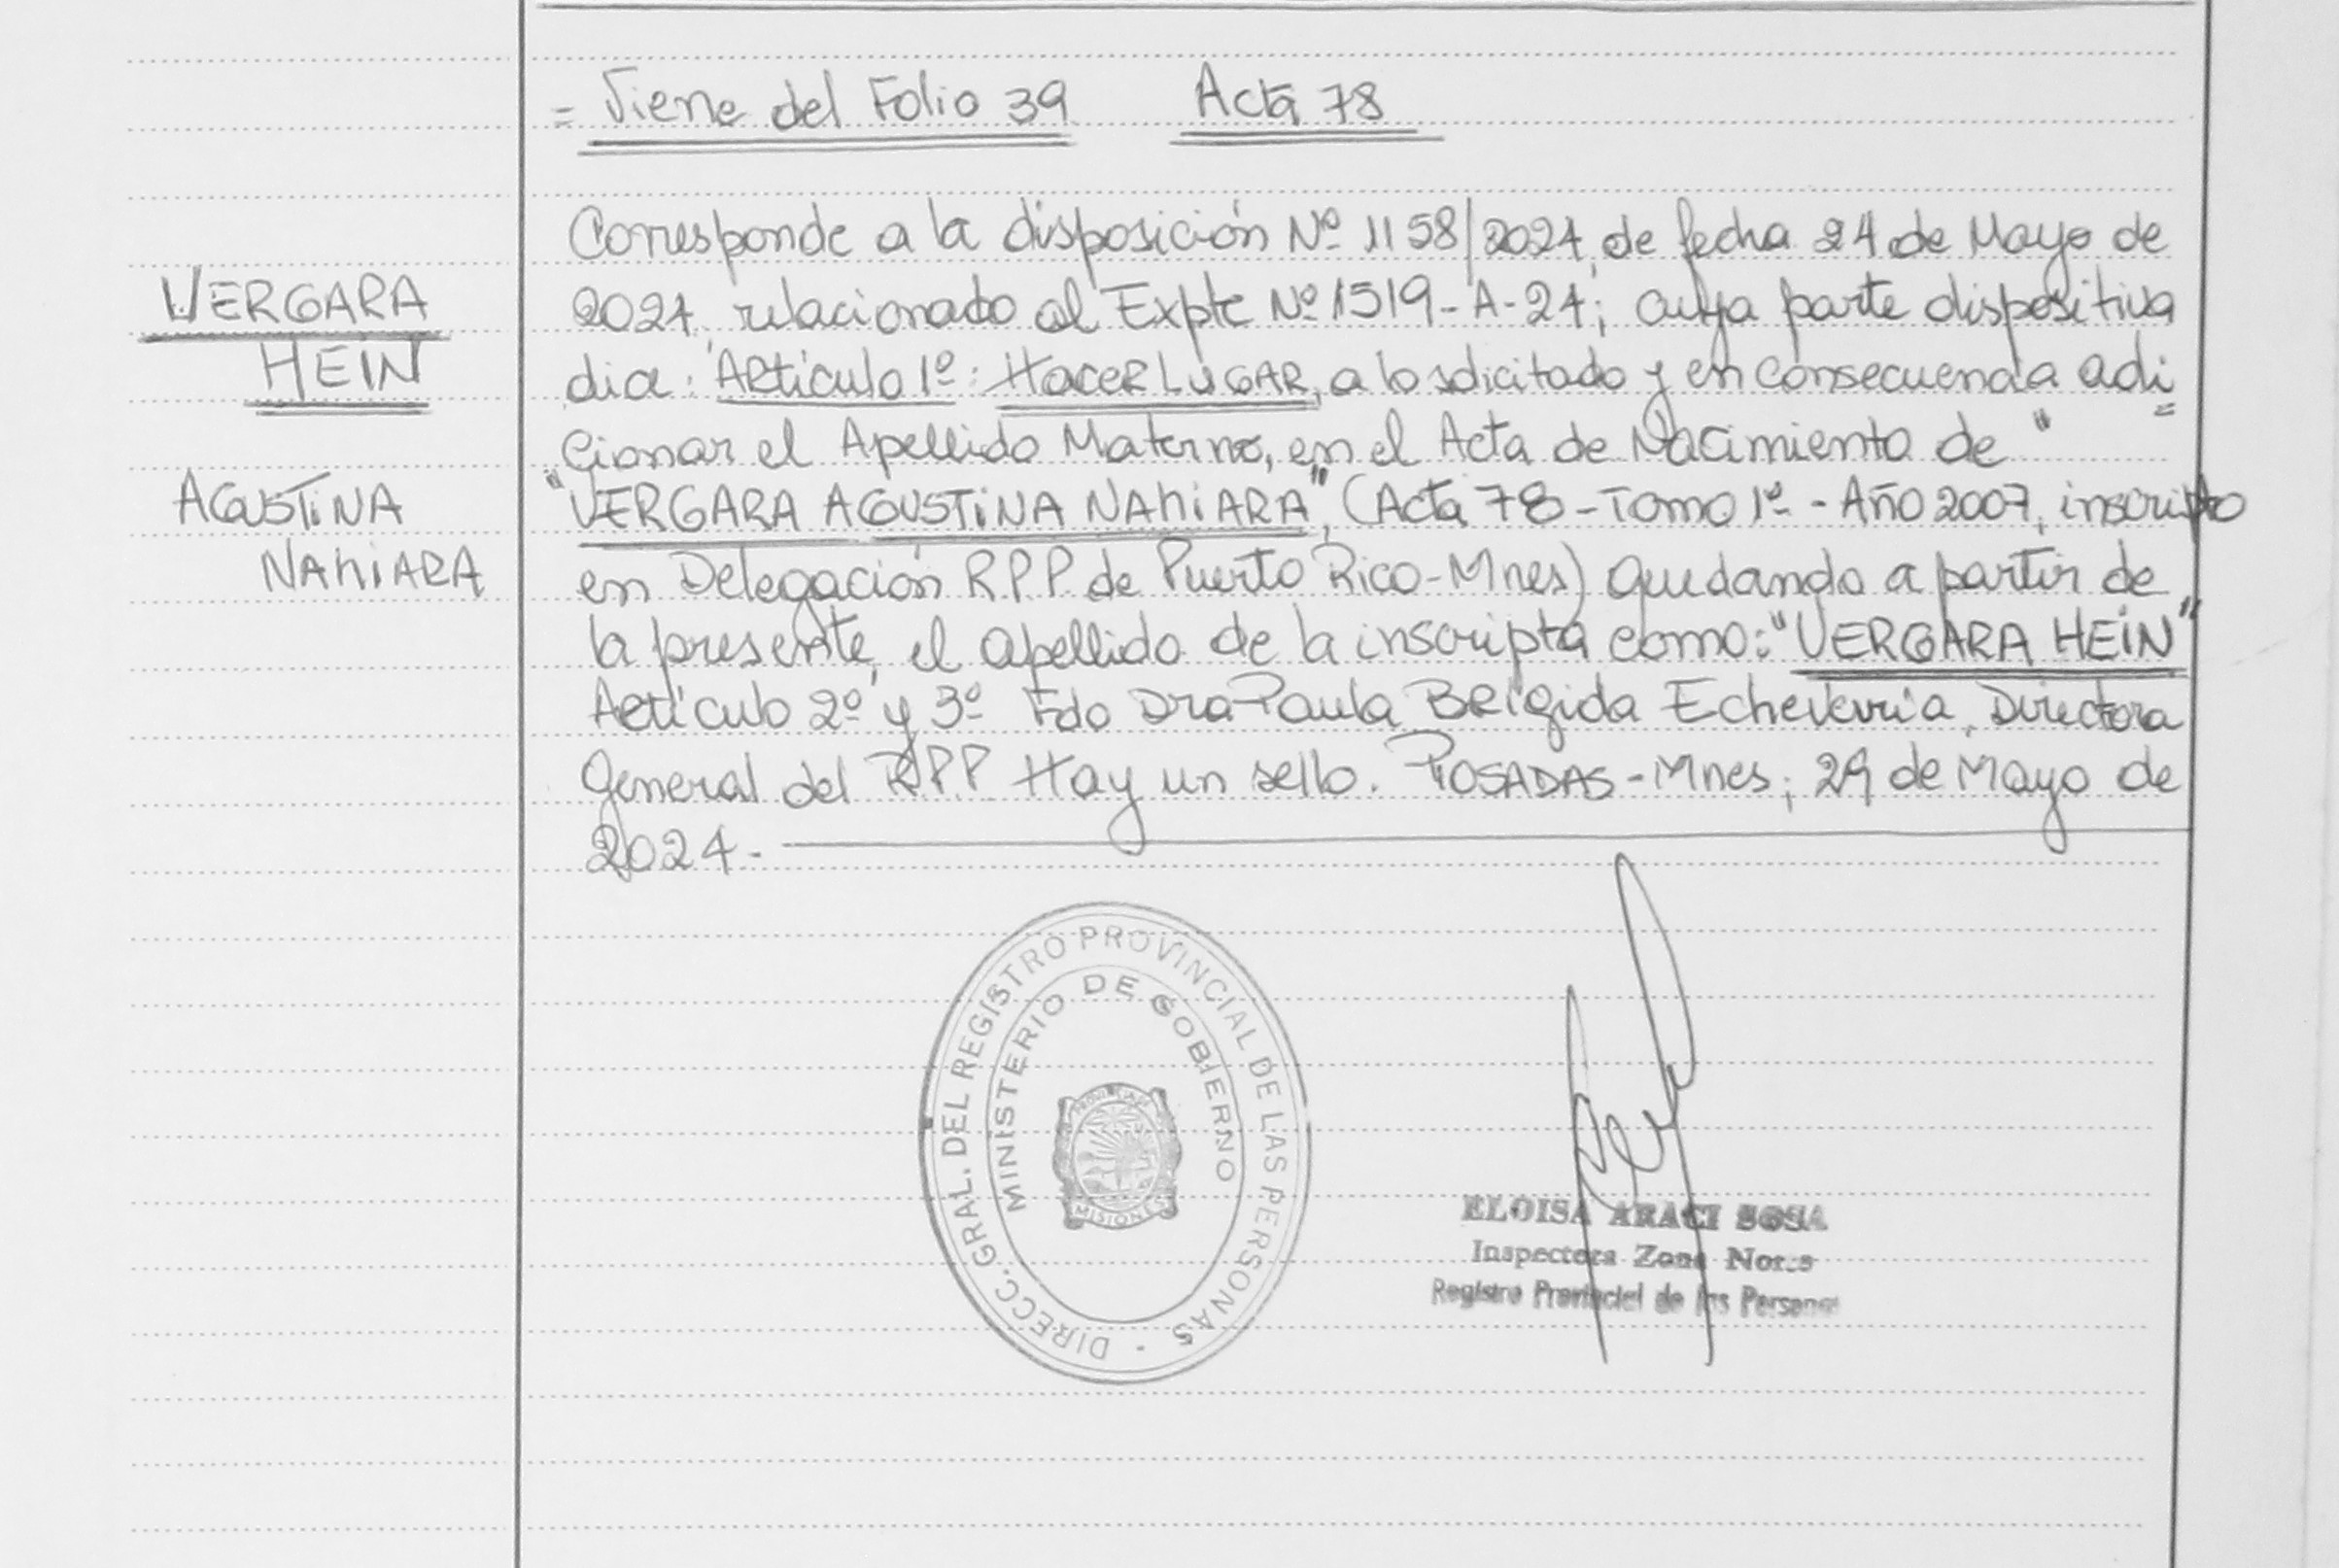 = Viene del Folio 39 Acta 78
Corresponde a la disposición Nº 1158/2024, de fecha 24 de Mayo de
2024, relacionado al Expte Nº 1519-A-24; cuya parte dispositiva
dice: Artículo 1º: HACER LUGAR, a lo solicitado y en consecuencia adi
=
cionar el Apellido Materno, en el Acta de Nacimiento de "
"VERGARA AGUSTINA NAHIARA", (Acta 78-Tomo 1º-Año 2007, inscripto
en Delegación RPP de Puerto Rico-Mnes) quedando a partir de
la presente, el apellido de la inscripta como: "VERGARA HEIN"
Artículo 2º y 3º Fdo Dra Paula Brígida Echeverría, Directora
General del R.P.P Hay un sello. POSADAS-Mnes; 29 de Mayo de
2024.-
VERGARA
HEIN
AGUSTINA
NAHIARA
DIRECC. GRAL. DEL REGISTRO PROVINCIAL DE LAS PERSONAS -
MINISTERIO DE GOBIERNO
MISIONES
ELOISA ARACI SOSA
Inspectora Zona
Registro Provincial de las Personas